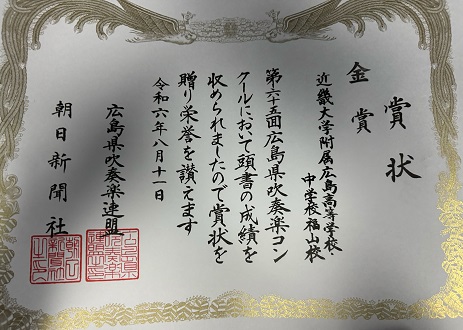 賞状
金賞
近畿大学附属広島高等学校・
中学校福山校
第六十五回広島県吹奏楽コン
クールにおいて頭書の成績を
収められましたので賞状を
贈り栄誉を讃えます
令和六年八月十一日
広島県吹奏楽連盟
朝日新聞社